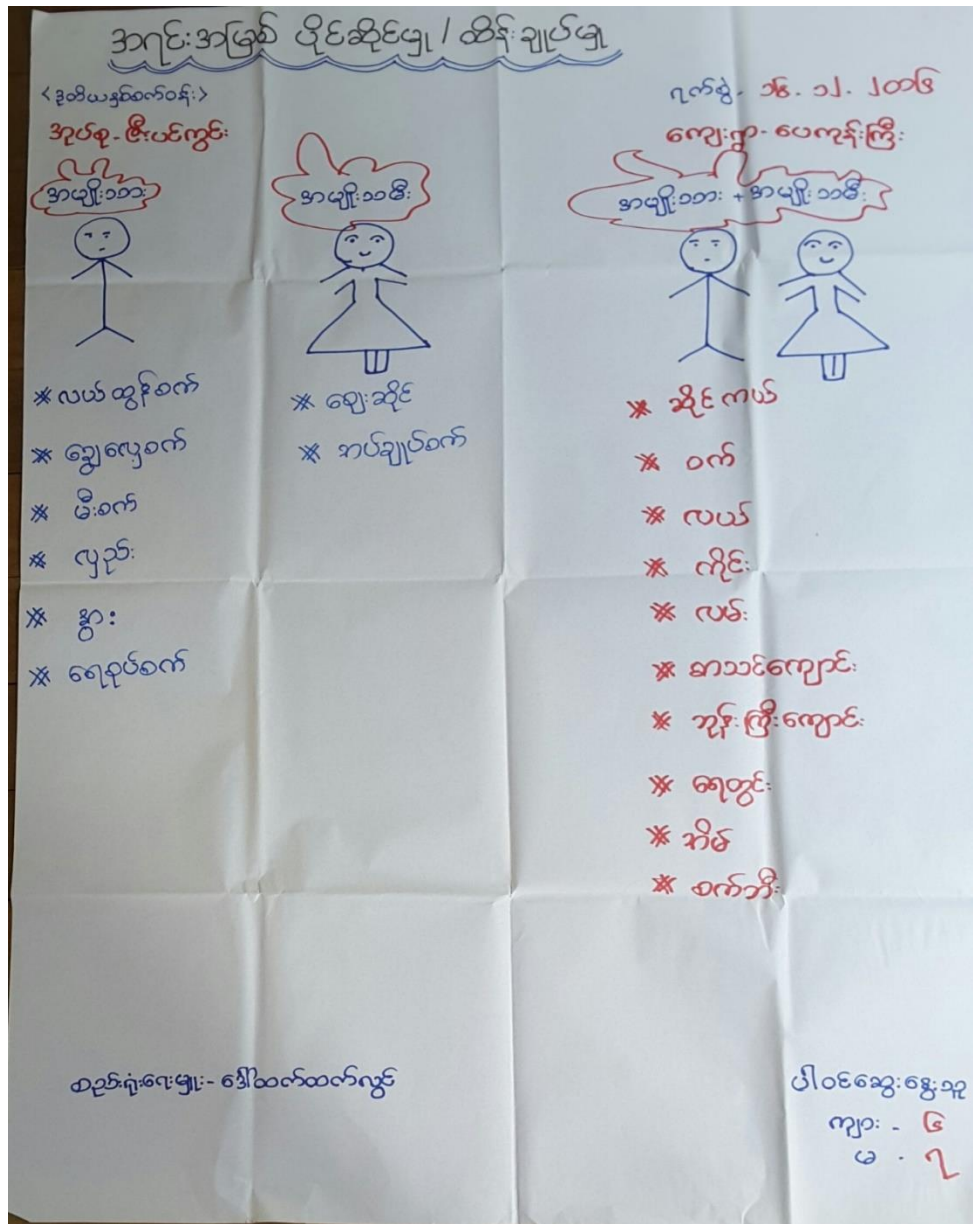 အရင်းအမြစ် ပိုင်ဆိုင်မှု / ထိန်းချုပ်မှု
<ဒုတိယနှစ်စက်ဝန်း>
ရက်စွဲ - ၁၆. ၁၂. ၂၀၁၆
အုပ်စု - ဇီးပင်ကွင်း
ကျေးရွာ - ပေကုန်းကြီး
အမျိုးသား
အမျိုးသမီး
အမျိုးသား + အမျိုးသမီး
* လယ်ထွန်စက်
* ခြွေလှေ့စက်
* မီးစက်
* လှည်း
* နွား
* ရေစုပ်စက်
* ဈေးဆိုင်
* အပ်ချုပ်စက်
* ဆိုင်ကယ်
* ဝက်
* လယ်
* ကိုင်း
* လမ်း
* စာသင်ကျောင်း
* ဘုန်းကြီးကျောင်း
* ရေတွင်း
* အိမ်
* စက်ဘီး
စည်းရုံးရေးမှူး - ဒေါ်ထက်ထက်လွင်
ပါဝင်ဆွေးနွေးသူ
ကျား - ၆
မ - ၇